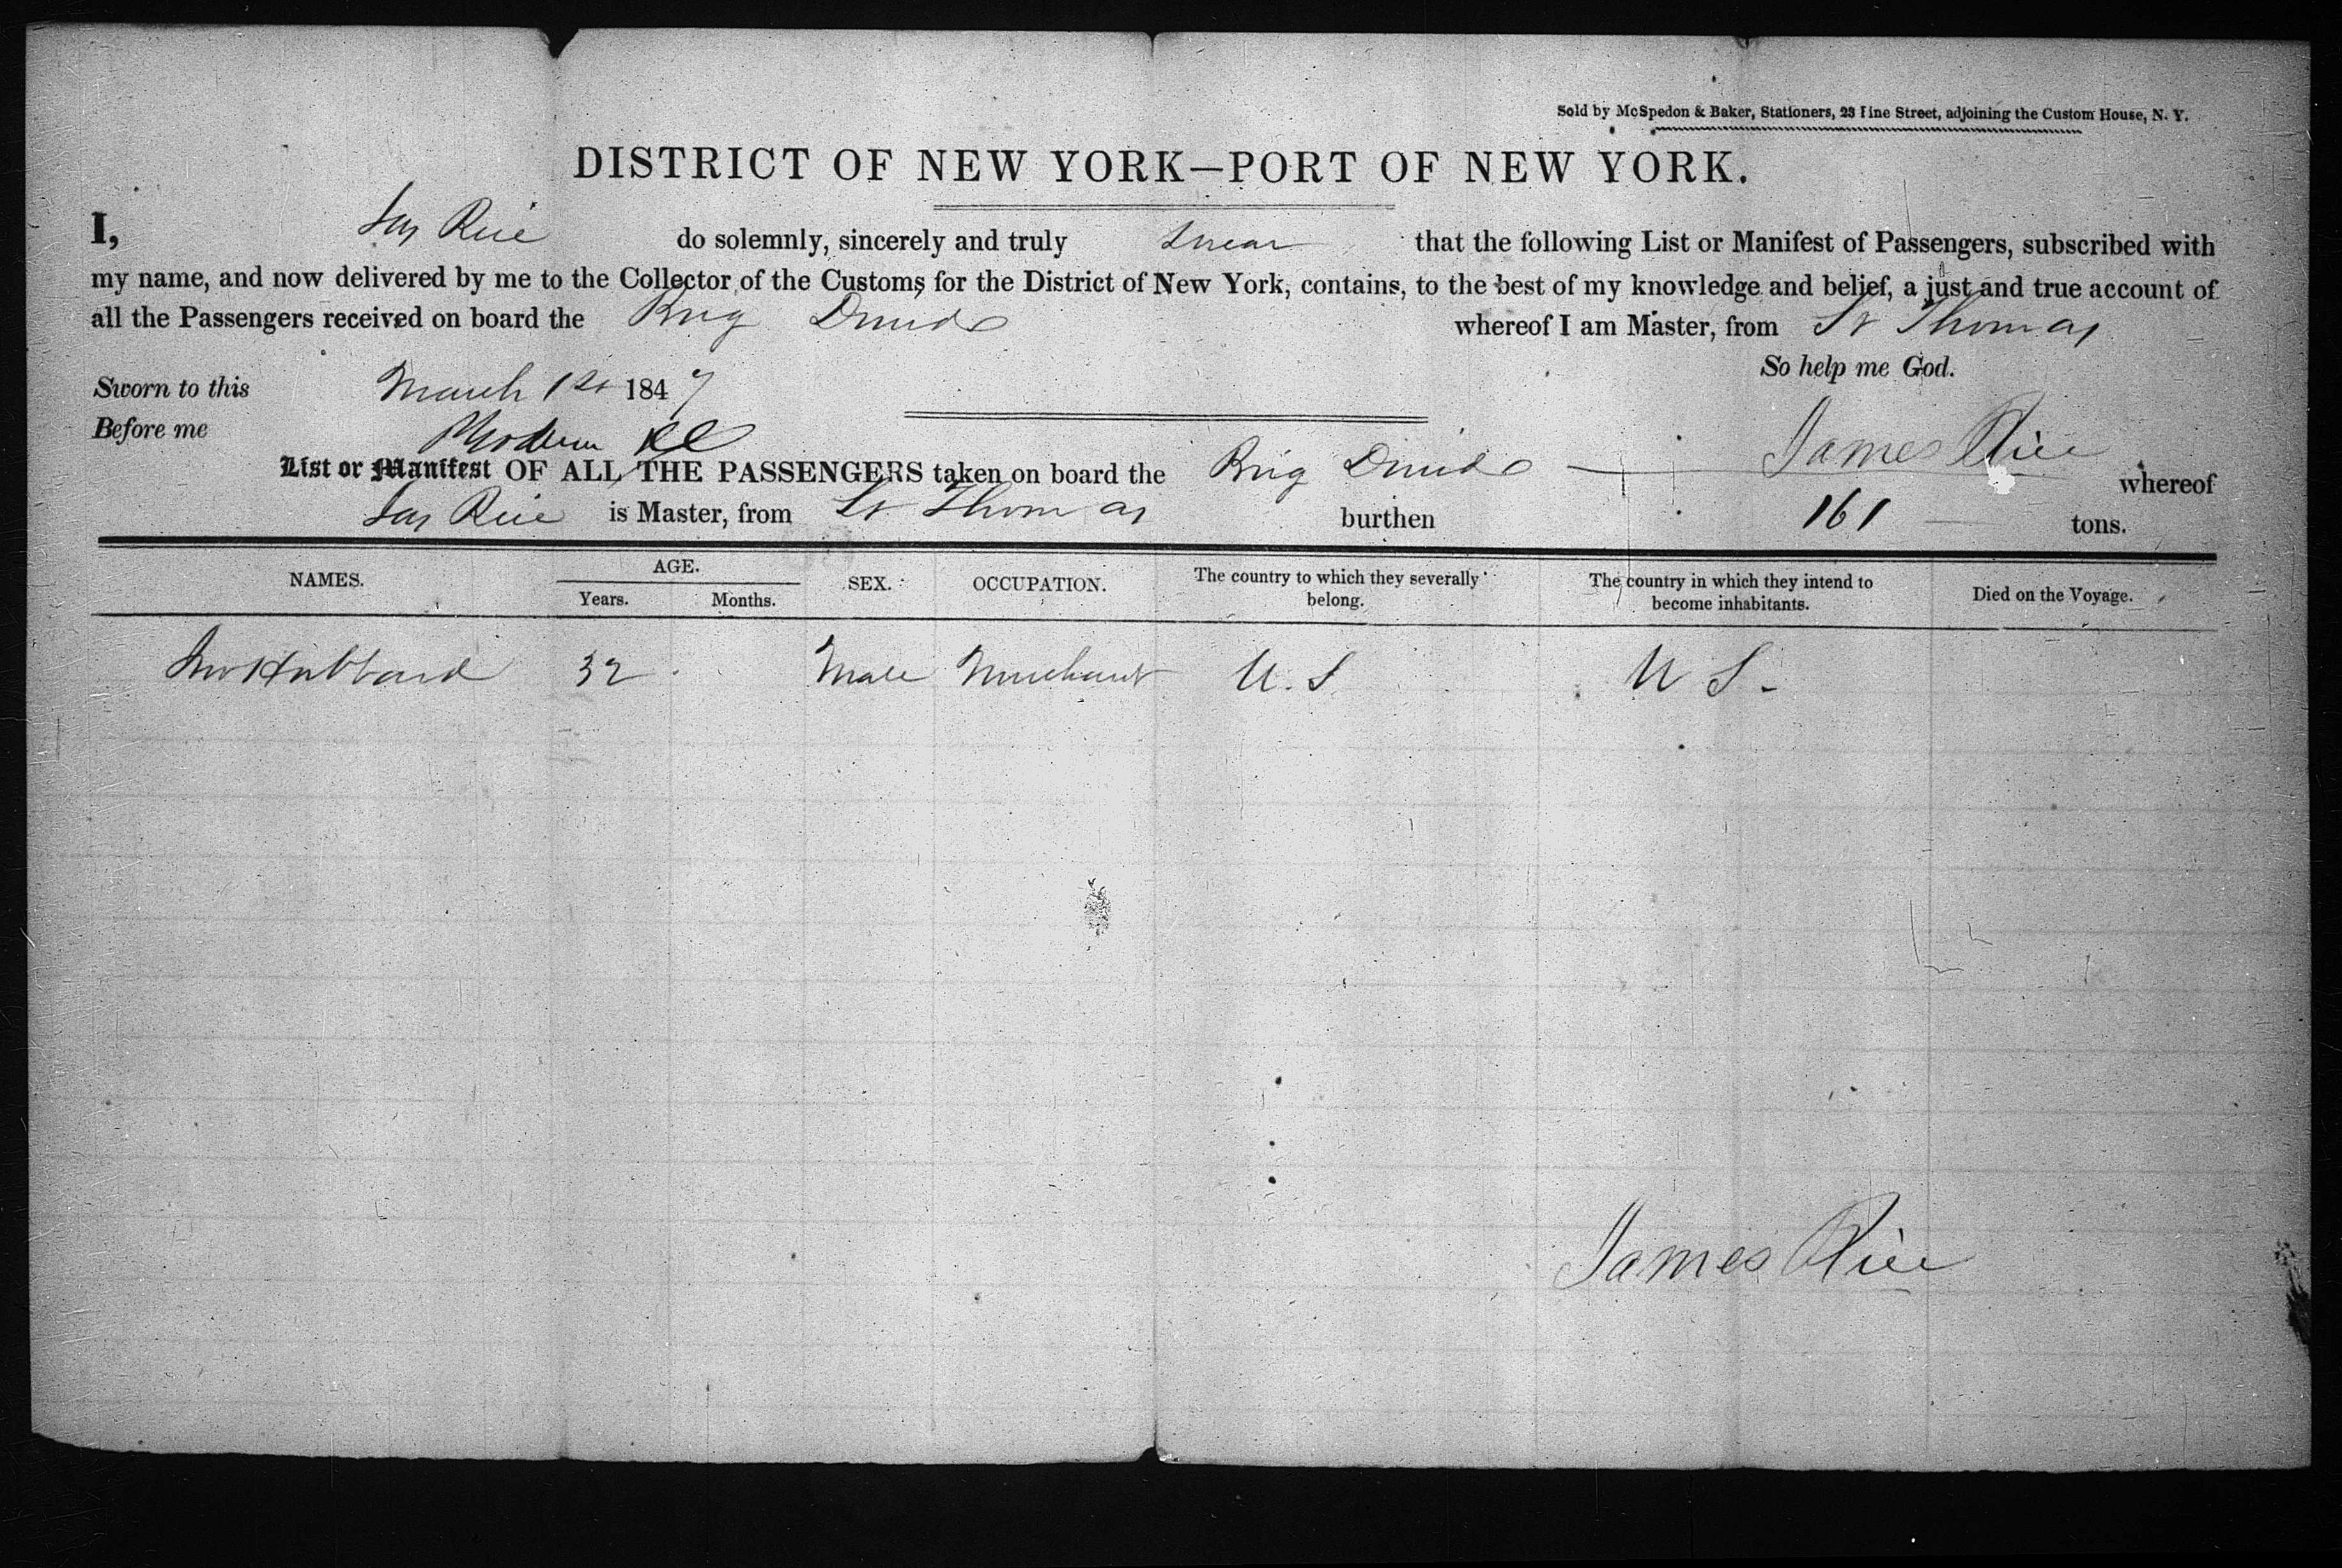 Sold by McSpedon & Baker, Stationers, 23 Pine Street, adjoining the Custom House, N. Y.
DISTRICT OF NEW YORK—PORT OF NEW YORK.
I, Jas Rice do solemnly, sincerely and truly swear that the following List or Manifest of Passengers, subscribed with
my name, and now delivered by me to the Collector of the Customs for the District of New York, contains, to the best of my knowledge and belief, a just and true account of
all the Passengers received on board the Brig Druid whereof I am Master, from St Thomas
So help me God.
Sworn to this March 1st 1847
Before me
James Rice
List or Manifest OF ALL THE PASSENGERS taken on board the Brig Druid whereof
Jas Rice is Master, from St Thomas burthen 161 tons.
NAMES. AGE. Years. Months. SEX. OCCUPATION. The country to which they severally belong. The country in which they intend to become inhabitants. Died on the Voyage.
Hubbard 32 Male Merchant U.S. U S.
James Rice